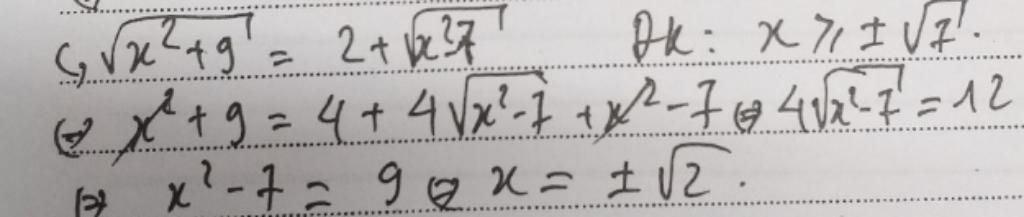 c, √(x²+9) = 2 + √(x²-7) Đk: x ≥ ± √7.
⇔ x² + 9 = 4 + 4√(x²-7) + x² - 7 ⇔ 4√(x²-7) = 12
⇔ x² - 7 = 9 ⇔ x = ± √2.